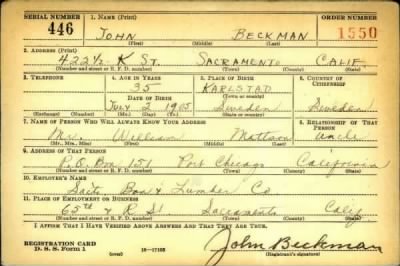 SERIAL NUMBER 1. NAME (Print) ORDER NUMBER
446 JOHN BECKMAN 1550
(First) (Middle) (Last)
2. ADDRESS (Print)
422½ K ST. SACRAMENTO CALIF.
(Number and street or R. F. D. number) (Town) (County) (State)
3. TELEPHONE 4. AGE IN YEARS 5. PLACE OF BIRTH 6. COUNTRY OF CITIZENSHIP
35 KARLSTAD
DATE OF BIRTH (Town or county)
July 2 1905 Sweden Sweden
(Exchange) (Number) (Mo.) (Day) (Yr.) (State or country)
7. NAME OF PERSON WHO WILL ALWAYS KNOW YOUR ADDRESS 8. RELATIONSHIP OF THAT PERSON
William Mattson Uncle
(Mr., Mrs., Miss) (First) (Middle) (Last)
9. ADDRESS OF THAT PERSON
P.O. Box 151 Port Chicago California
(Number and street or R. F. D. number) (Town) (County) (State)
10. EMPLOYER'S NAME
Sacto Box & Lumber Co
11. PLACE OF EMPLOYMENT OR BUSINESS
65th & R St Sacramento Calif.
(Number and street or R. F. D. number) (Town) (County) (State)
I AFFIRM THAT I HAVE VERIFIED ABOVE ANSWERS AND THAT THEY ARE TRUE.
REGISTRATION CARD
D. S. S. Form 1 16—17105 John Beckman
(Registrant's signature)